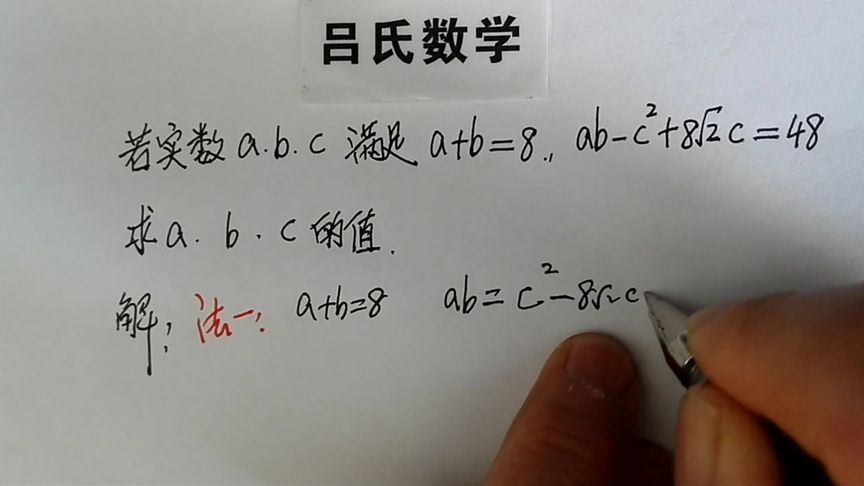 吕氏数学
若实数a.b.c 满足 a+b=8., ab-c²+8√2c=48
求a. b. c的值.
解: 法一: a+b=8 ab=c²-8√2c